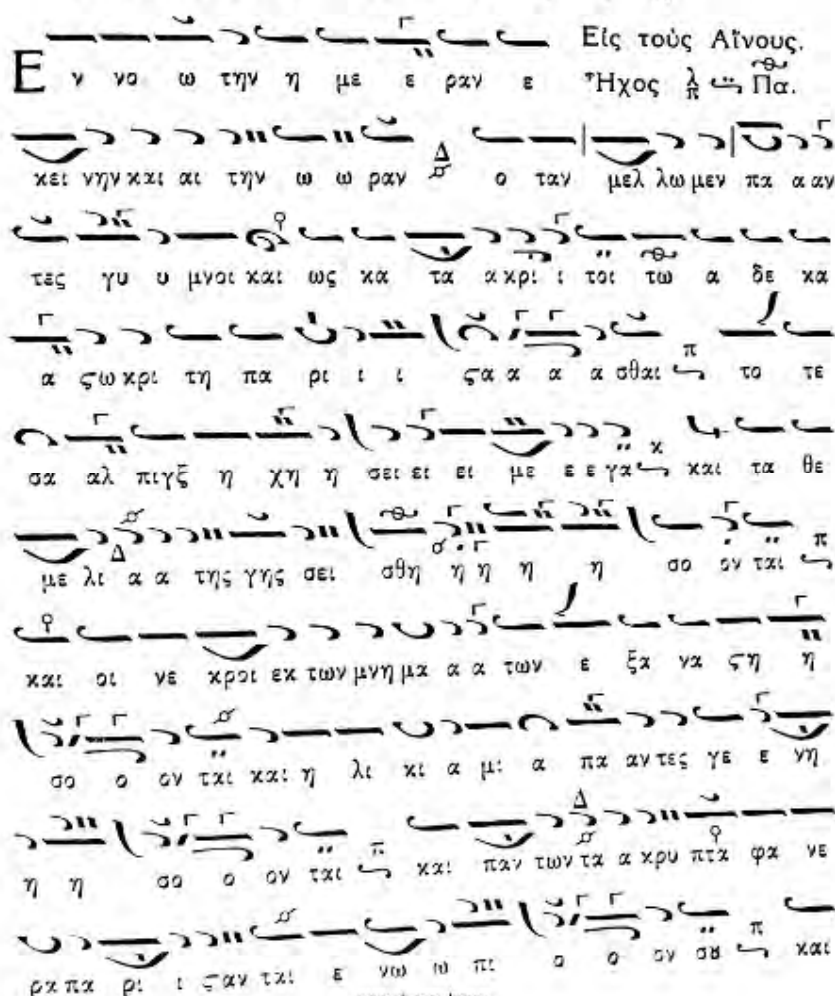 Εἰς τοὺς Αἴνους.
Ε ν νο ω την η με ε ραν ε Ἦχος λ π Πα.
κει νην και αι την ω ω ραν Δ ο ταν μελ λω μεν πα α αν
τες γυ υ μνοι και ως κα τα α κρι ι τοι τω α δε κα
α ϛω κρι τη πα ρι ι ι ϛα α α α σθαι π το τε
σα αλ πιγξ η χη η σει ει ει με ε ε γα κ και τα θε
με λι α α της γης σει σθη η η η η σο ον ται π
Δ
και οι νε κροι εκ των μνη μα α α των ε ξα να ϛη η
σο ο ον ται και η λι κι α μι α πα αν τες γε ε νη
η η σο ο ον ται π και παν των τα α κρυ πτα φα νε
Δ
ρα πα ρι ι ϛαν ται ε νω ω πι ο ο ον σȣ π και